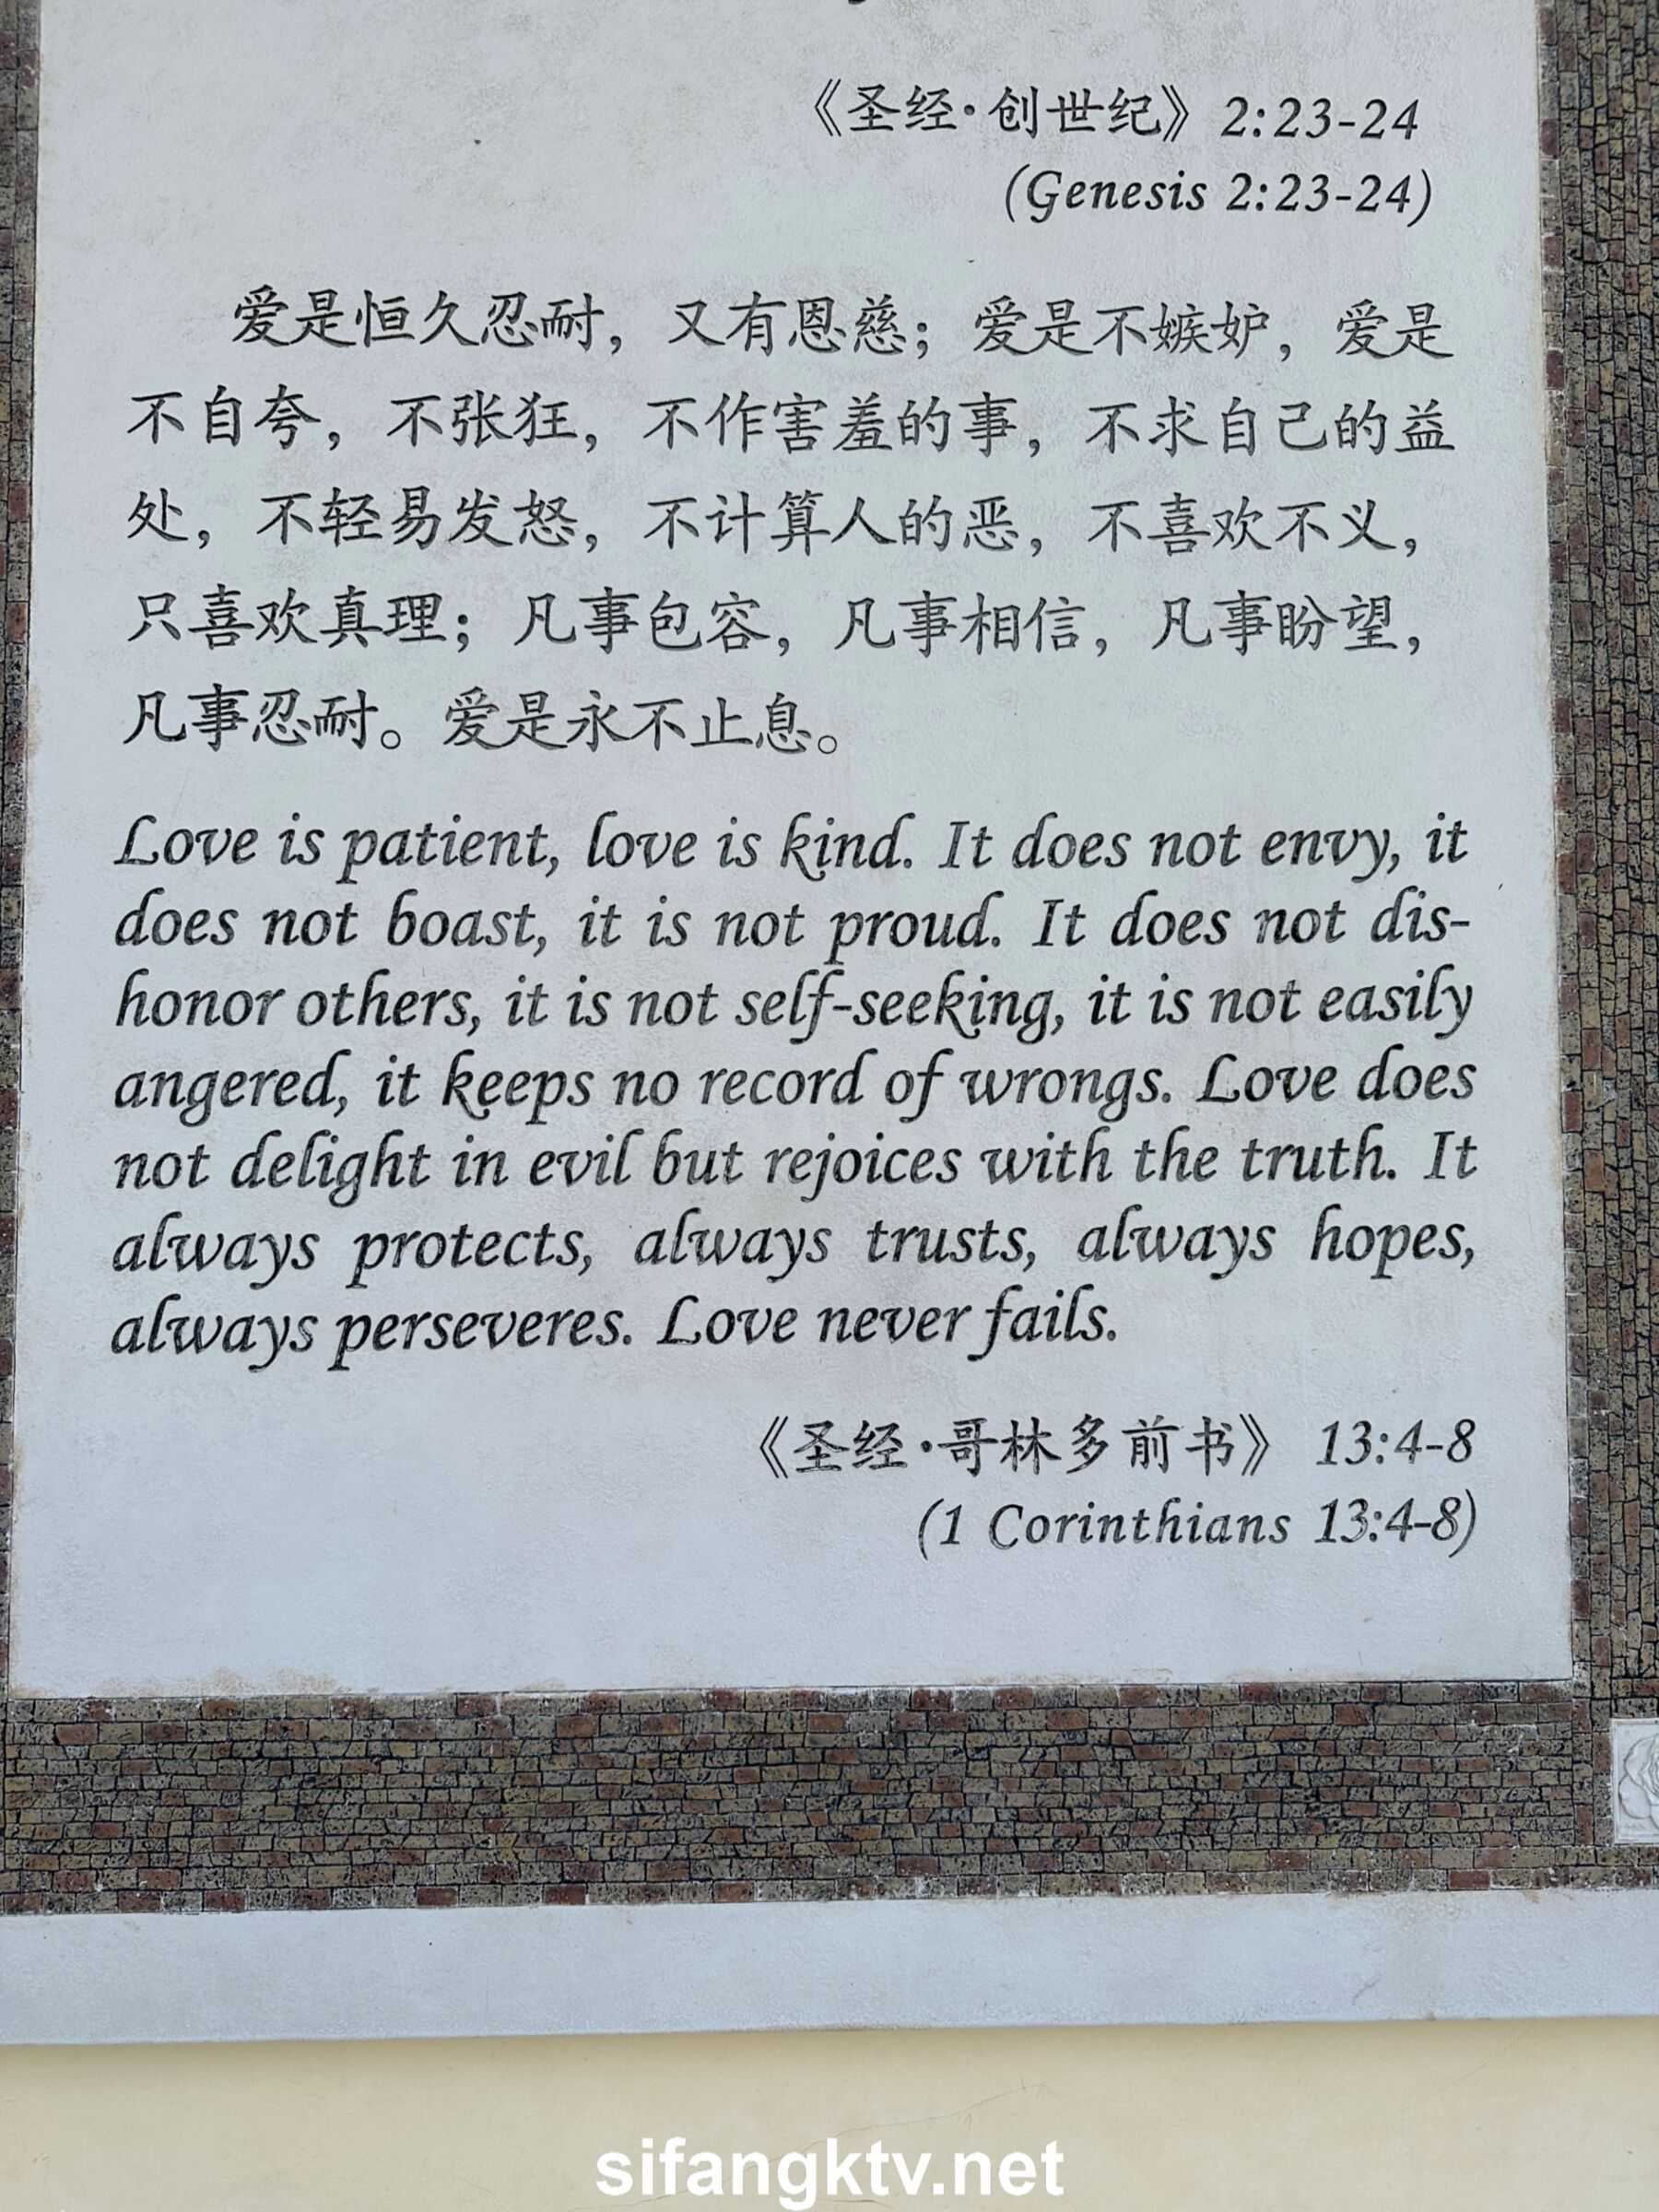 《圣经·创世纪》2:23-24
(Genesis 2:23-24)
爱是恒久忍耐，又有恩慈；爱是不嫉妒，爱是
不自夸，不张狂，不作害羞的事，不求自己的益
处，不轻易发怒，不计算人的恶，不喜欢不义，
只喜欢真理；凡事包容，凡事相信，凡事盼望，
凡事忍耐。爱是永不止息。
Love is patient, love is kind. It does not envy, it
does not boast, it is not proud. It does not dis-
honor others, it is not self-seeking, it is not easily
angered, it keeps no record of wrongs. Love does
not delight in evil but rejoices with the truth. It
always protects, always trusts, always hopes,
always perseveres. Love never fails.
《圣经·哥林多前书》 13:4-8
(1 Corinthians 13:4-8)
sifangktv.net